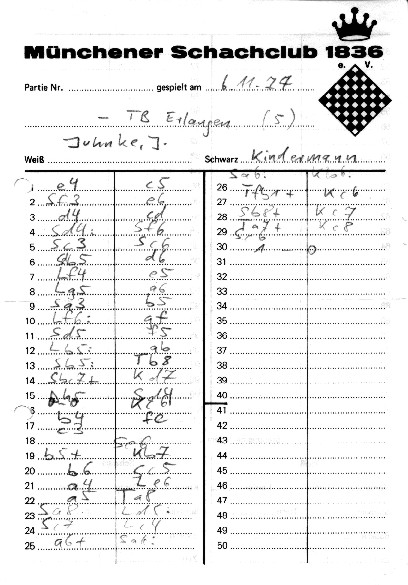 Münchener Schachclub 1836
e. V.
Partie Nr. gespielt am 6.11.77
- TB Erlangen (5)
Juhnke, J.
Weiß Schwarz Kindermann
1 e4 c5
2 Sf3 e6
3 d4 cd
4 Sd4: Sf6
5 Sc3 Sc6
6 Sb5 d6
7 Lf4 e5
8 Lg5 a6
9 Sa3 b5
10 Lf6: gf
11 Sd5 f5
12 Lb5: ab
13 Sb5: Tb8
14 Sbc7+ Kd7
15 0-0
16 b4 fe
17 c3
18 Sc6
19 b5+ Kb7
20 b6 Lc5
21 a4 Le6
22 a5 Ta8
23 Sa8
24 Sc7 Lc4
25 a6+ Sa6:
Sa6: Kb6:
26 Tfb1+ Kc6
27 Sb8+ Kc7
28 Kc8
29 Sc6
30 1 - 0
31
32
33
34
35
36
37
38
39
40
41
42
43
44
45
46
47
48
49
50